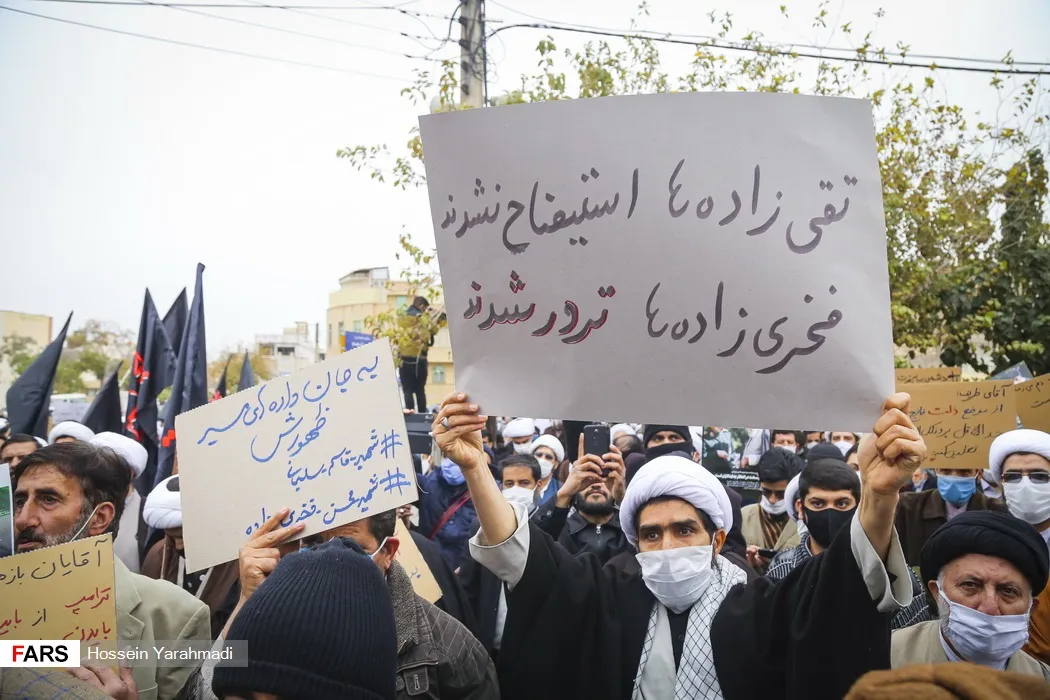 تقی زاده ها استیضاح نشدند
فخری زاده ها ترور شدند
به جان داده های مسیر
ظهورش
#شهید_قاسم_سلیمانی
#شهید_محسن_فخری_زاده
آقایان باز ه
ترامپ
از
آقای ظریف!
از موضع ذلت
FARS
Hossein Yarahmadi